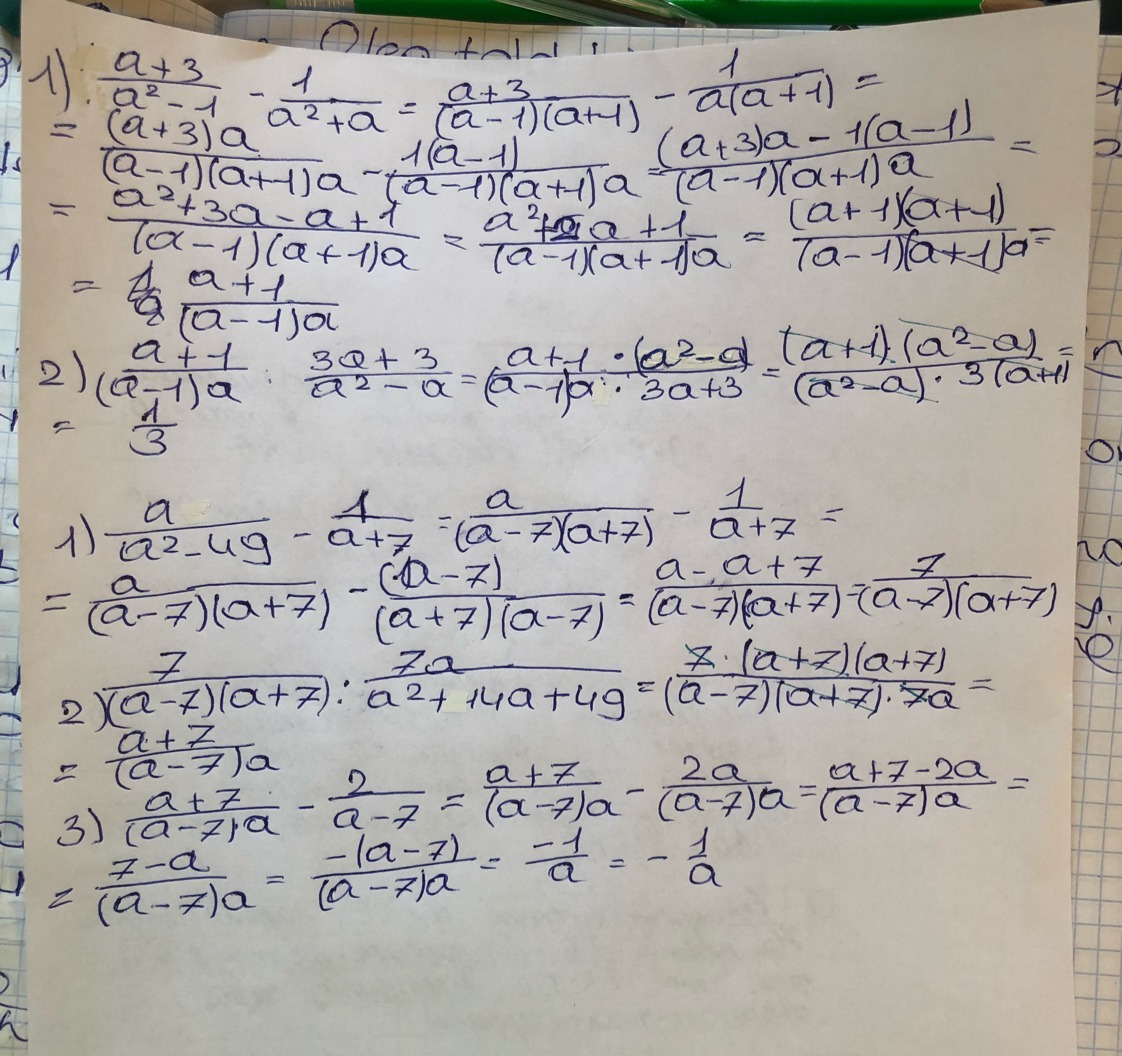 1) (a+3)/(a²-1) - 1/(a²+a) = (a+3)/((a-1)(a+1)) - 1/(a(a+1)) =
= ((a+3)a)/((a-1)(a+1)a) - (1(a-1))/((a-1)(a+1)a) = ((a+3)a-1(a-1))/((a-1)(a+1)a) =
= (a²+3a-a+1)/((a-1)(a+1)a) = (a²+2a+1)/((a-1)(a+1)a) = ((a+1)(a+1))/((a-1)(a+1)a) =
= (a+1)/((a-1)a)
2) (a+1)/((a-1)a) : (3a+3)/(a²-a) = (a+1·(a²-a))/((a-1)a·3a+3) = ((a+1)·(a²-a))/((a²-a)·3(a+1)) =
= 1/3
1) a/(a²-49) - 1/(a+7) = a/((a-7)(a+7)) - 1/(a+7) =
= a/((a-7)(a+7)) - (a-7)/((a+7)(a-7)) = (a-a+7)/((a-7)(a+7)) = 7/((a-7)(a+7))
2) 7/((a-7)(a+7)) : 7a/(a²+14a+49) = (7·(a+7)(a+7))/((a-7)(a+7)·7a) =
= (a+7)/((a-7)a)
3) (a+7)/((a-7)a) - 2/(a-7) = (a+7)/((a-7)a) - 2a/((a-7)a) = (a+7-2a)/((a-7)a) =
= (7-a)/((a-7)a) = (-(a-7))/((a-7)a) = -1/a = - 1/a